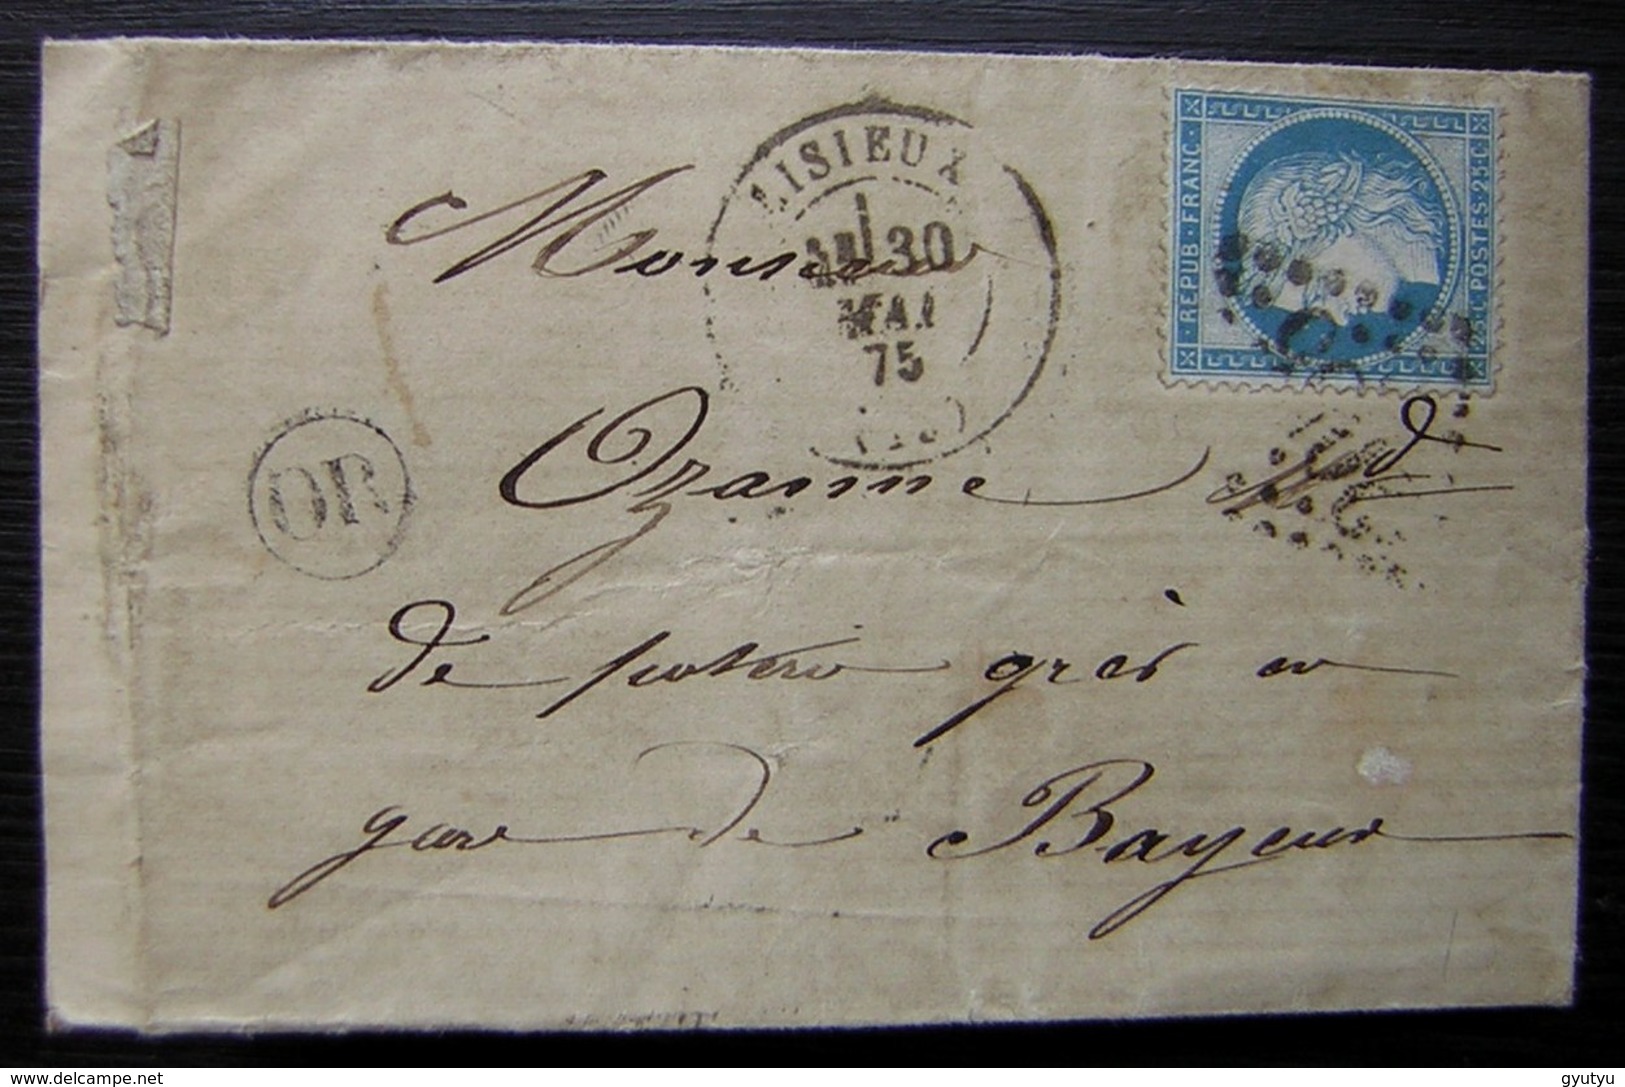 LISIEUX
30
MAI
75
REPUB·FRANC·
25·C·POSTES·25·C·
OR
Monsieur
Ozanne Md
de poterie grès en
gare de Bayeux
delcampe.net
gyutyu